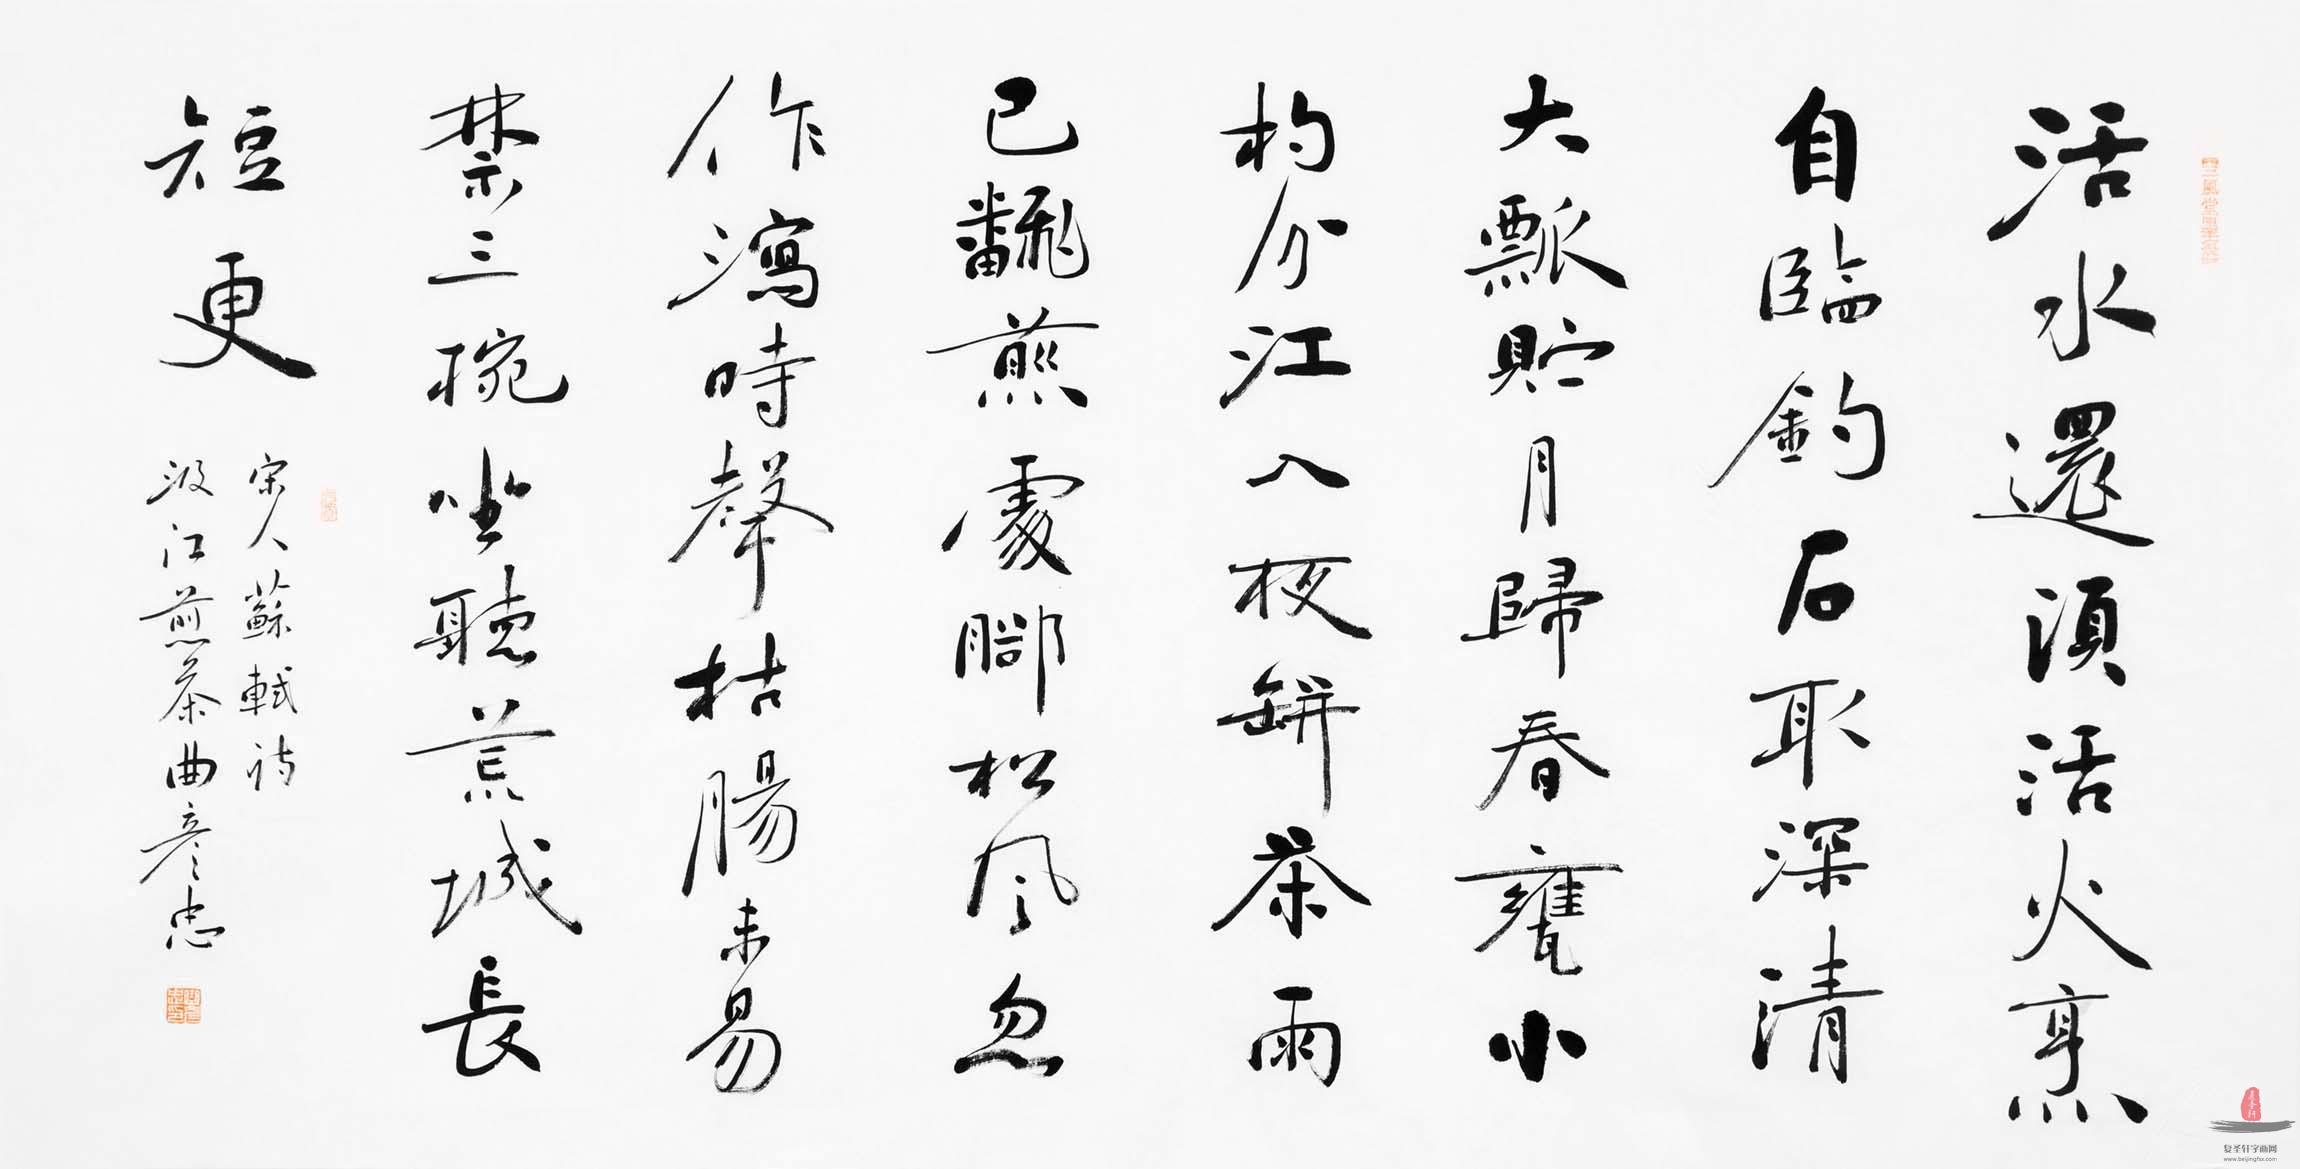 活水還須活火烹
自臨釣石取深清
大瓢貯月歸春甕小
杓分江入夜缾茶雨
已翻煎處腳松风忽
作瀉時聲枯腸未易
禁三椀坐聽荒城長
短更
宋人蘇軾诗
汲江煎茶曲彦忠
复圣轩字画网
www.beijingfsx.com